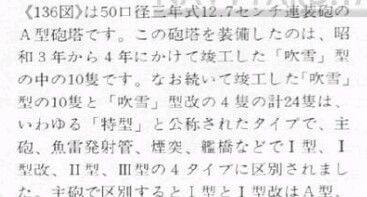 《136図》は50口径三年式12.7センチ連装砲の
A型砲塔です。この砲塔を装備したのは、昭
和3年から4年にかけて竣工した「吹雪」型
の中の10隻です。なお続いて竣工した「吹雪」
型の10隻と「吹雪」型改の4隻の計24隻は、
いわゆる「特型」と公称されたタイプで、主
砲、魚雷発射管、煙突、艦橋などでⅠ型、Ⅰ
型改、Ⅱ型、Ⅲ型の4タイプに区別されまし
た。主砲で区別するとⅠ型とⅠ型改はA型、